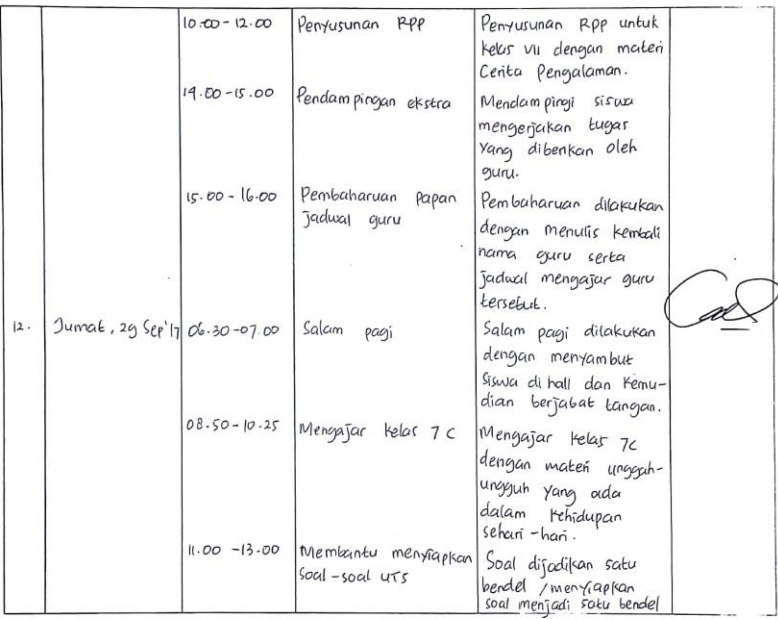 10.00 - 12.00 Penyusunan RPP Penyusunan RPP untuk
kelas VII dengan materi
Cerita Pengalaman.
14.00 - 15.00 Pendampingan ekstra Mendampingi siswa
mengerjakan tugas
yang diberikan oleh
guru.
15.00 - 16.00 Pembaharuan papan Pembaharuan dilakukan
jadwal guru dengan menulis kembali
nama guru serta
jadwal mengajar guru
tersebut.
12. Jumat, 29 Sep'17 06.30 - 07.00 Salam pagi Salam pagi dilakukan
dengan menyambut
siswa di hall dan kemu-
dian berjabat tangan.
08.50 - 10.25 Mengajar kelas 7 C Mengajar kelas 7c
dengan materi unggah-
ungguh yang ada
dalam kehidupan
sehari - hari.
11.00 - 13.00 Membantu menyiapkan Soal dijadikan satu
soal - soal UTS bendel / menyiapkan
soal menjadi satu bendel